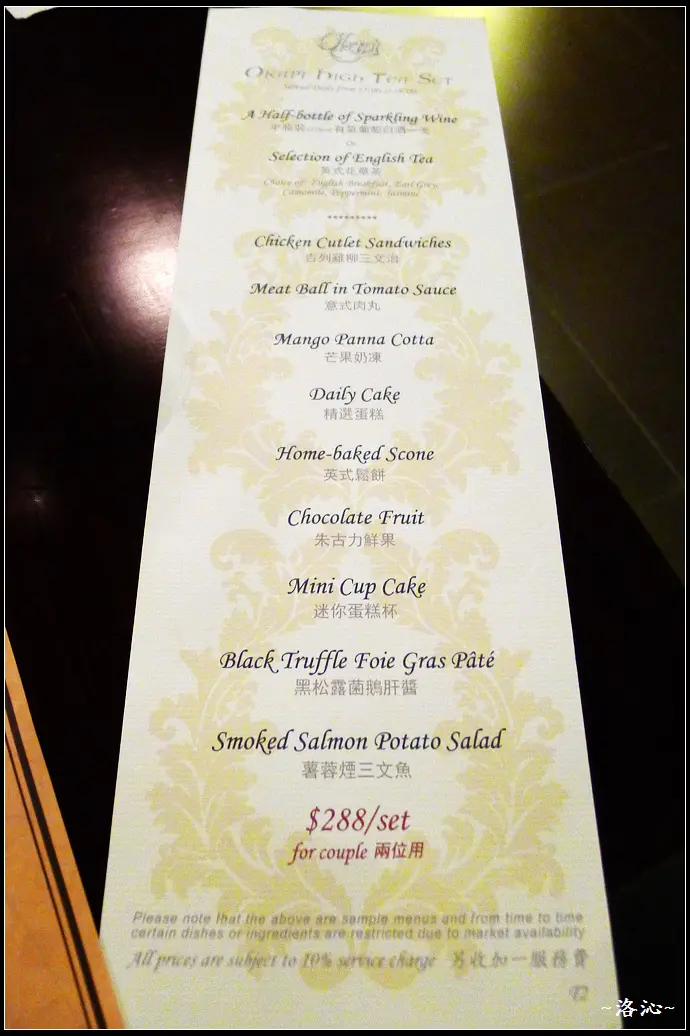 Okapi High Tea Set
A Half-bottle of Sparkling Wine
Or
Selection of English Tea
英式花草茶
Choice of: English Breakfast, Earl Grey,
Camomile, Peppermint, Jasmine
*********
Chicken Cutlet Sandwiches
吉列雞柳三文治
Meat Ball in Tomato Sauce
意式肉丸
Mango Panna Cotta
芒果奶凍
Daily Cake
精選蛋糕
Home-baked Scone
英式鬆餅
Chocolate Fruit
朱古力鮮果
Mini Cup Cake
迷你蛋糕杯
Black Truffle Foie Gras Pâté
黑松露菌鵝肝醬
Smoked Salmon Potato Salad
薯蓉煙三文魚
$288/set
for couple 兩位用
Please note that the above are sample menus and from time to time
certain dishes or ingredients are restricted due to market availability
All prices are subject to 10% service charge 另收加一服務費
~洛沁~